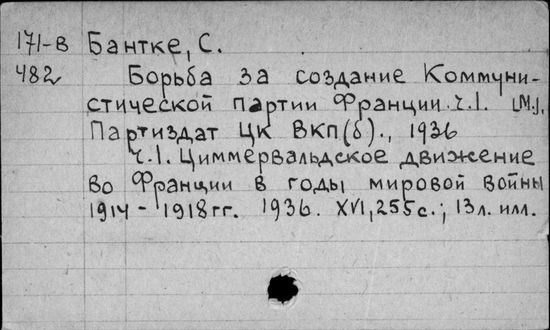 171-В Бантке, С.
482 Борьба за создание Коммуни-
стической партии Франции. Ч.1. [М.],
Партиздат ЦК ВКП(б)., 1936
Ч.1. Циммервальдское движение
во Франции в годы мировой войны
1914-1918гг. 1936. XVI, 255с.; 13л. илл.